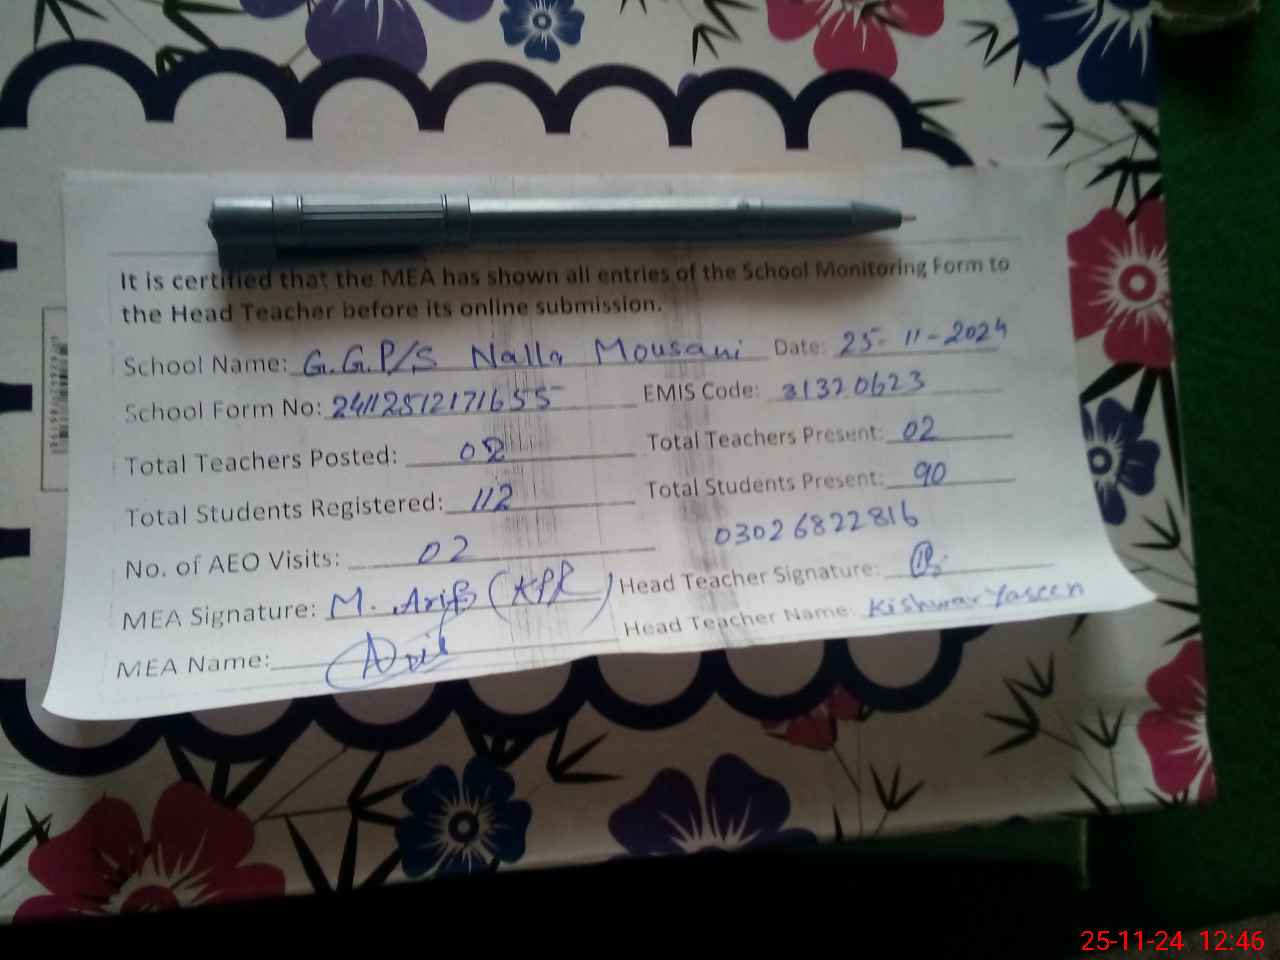 It is certified that the MEA has shown all entries of the School Monitoring Form to
the Head Teacher before its online submission.
School Name: G.G.P/S Nalla Mousani Date: 25-11-2024
School Form No: 24112512171655 EMIS Code: 31320623
Total Teachers Posted: 02 Total Teachers Present: 02
Total Students Registered: 112 Total Students Present: 90
No. of AEO Visits: 02 03026822816
MEA Signature: M. Arif (KPR) Head Teacher Signature:
MEA Name: Arif Head Teacher Name Kishwar Yaseen
25-11-24 12:46